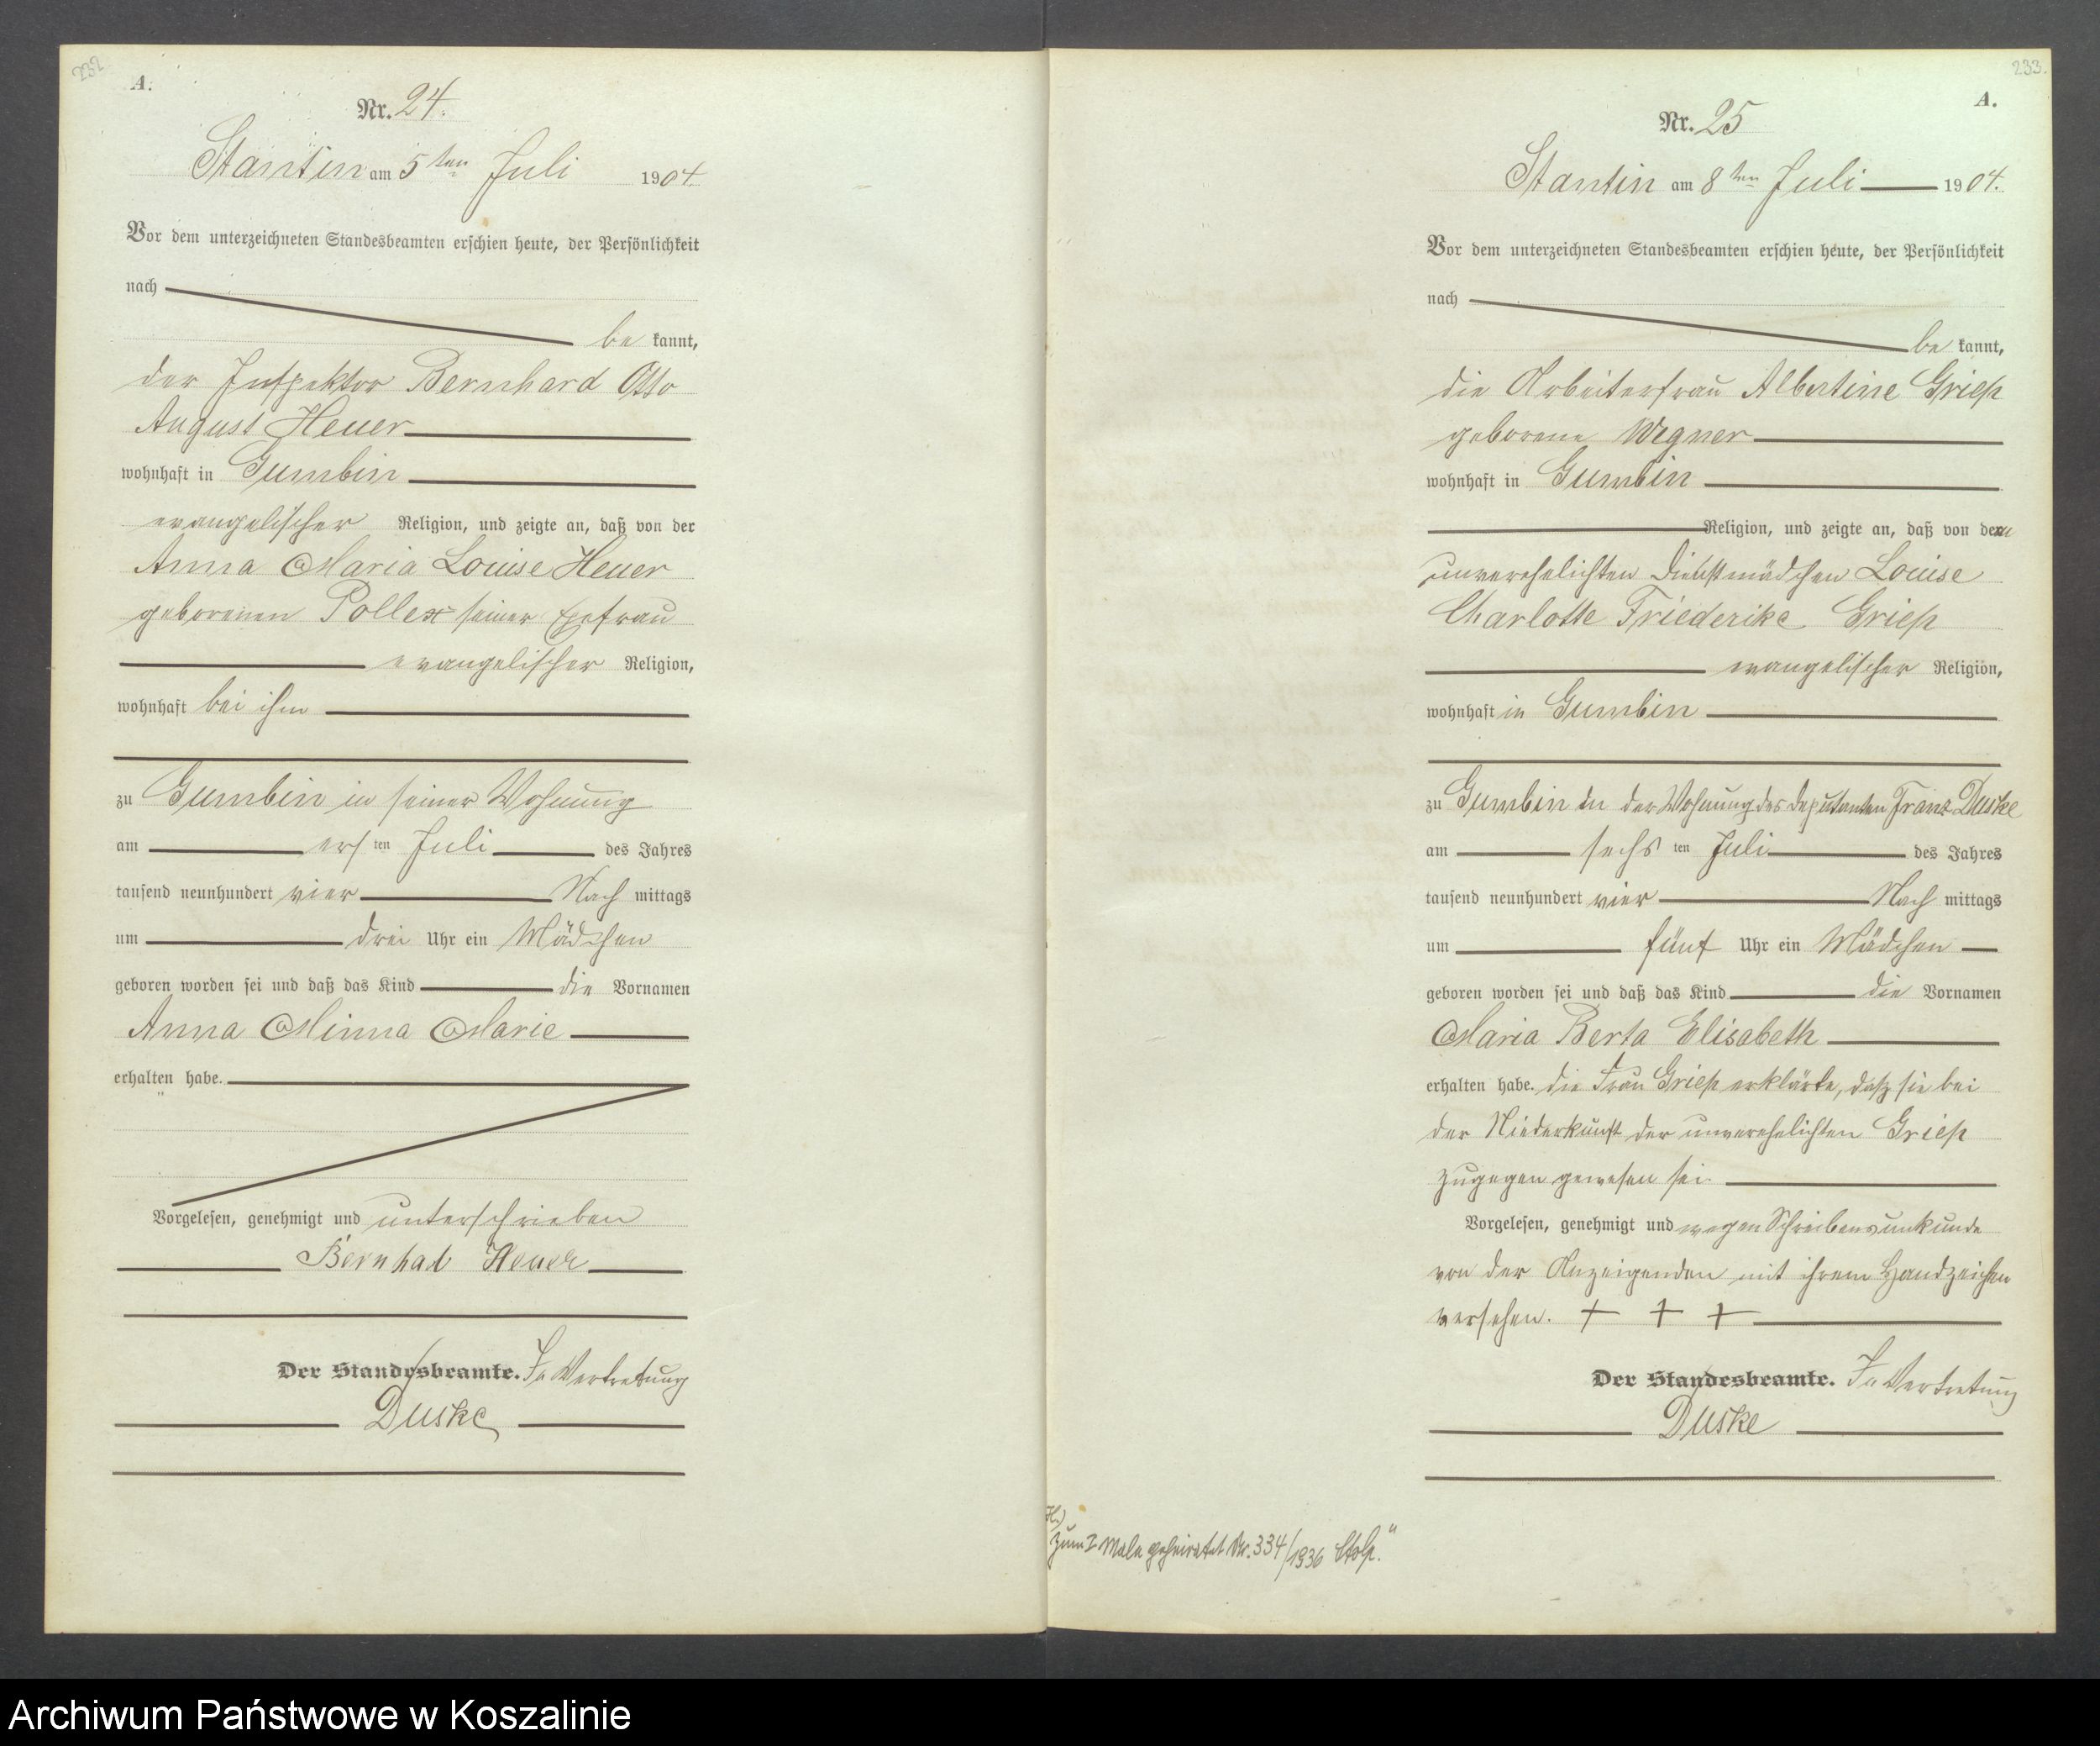 232
A.
Nr. 24.
Stantin am 5ten Juli 1904.
Vor dem unterzeichneten Standesbeamten erschien heute, der Persönlichkeit
nach
be kannt,
der Inspektor Bernhard Otto
August Heuer
wohnhaft in Gumbin
evangelischer Religion, und zeigte an, daß von der
Anna Maria Louise Heuer
geborenen Pollex seiner Ehefrau
evangelischer Religion,
wohnhaft bei ihm
zu Gumbin in seiner Wohnung
am ersten Juli des Jahres
tausend neunhundert vier Nach mittags
um drei Uhr ein Mädchen
geboren worden sei und daß das Kind die Vornamen
Anna Minna Marie
erhalten habe.
Vorgelesen, genehmigt und unterschrieben
Bernhad Heuer
Der Standesbeamte. In Vertretung
Duske
233.
A.
Nr. 25
Stantin am 8ten Juli 1904.
Vor dem unterzeichneten Standesbeamten erschien heute, der Persönlichkeit
nach
be kannt,
die Arbeiterfrau Albertine Griep
geborene Wegner
wohnhaft in Gumbin
Religion, und zeigte an, daß von dem
unverehelichten Dienstmädchen Louise
Charlotte Friederike Griep
evangelischer Religion,
wohnhaft in Gumbin
zu Gumbin in der Wohnung des Deputanten Franz Duske
am sechsten Juli des Jahres
tausend neunhundert vier Nach mittags
um fünf Uhr ein Mädchen
geboren worden sei und daß das Kind die Vornamen
Maria Berta Elisabeth
erhalten habe. Die Frau Griep erklärte, daß sie bei
der Niederkunft der unverehelichten Griep
zugegen gewesen sei.
Vorgelesen, genehmigt und wegen Schreibensunkunde
von der Anzeigenden mit ihrem Handzeichen
versehen. + + +
Der Standesbeamte. In Vertretung
Duske
H.)
Zum I Male geheiratet Nr. 334/1936 Stolp."
Archiwum Państwowe w Koszalinie